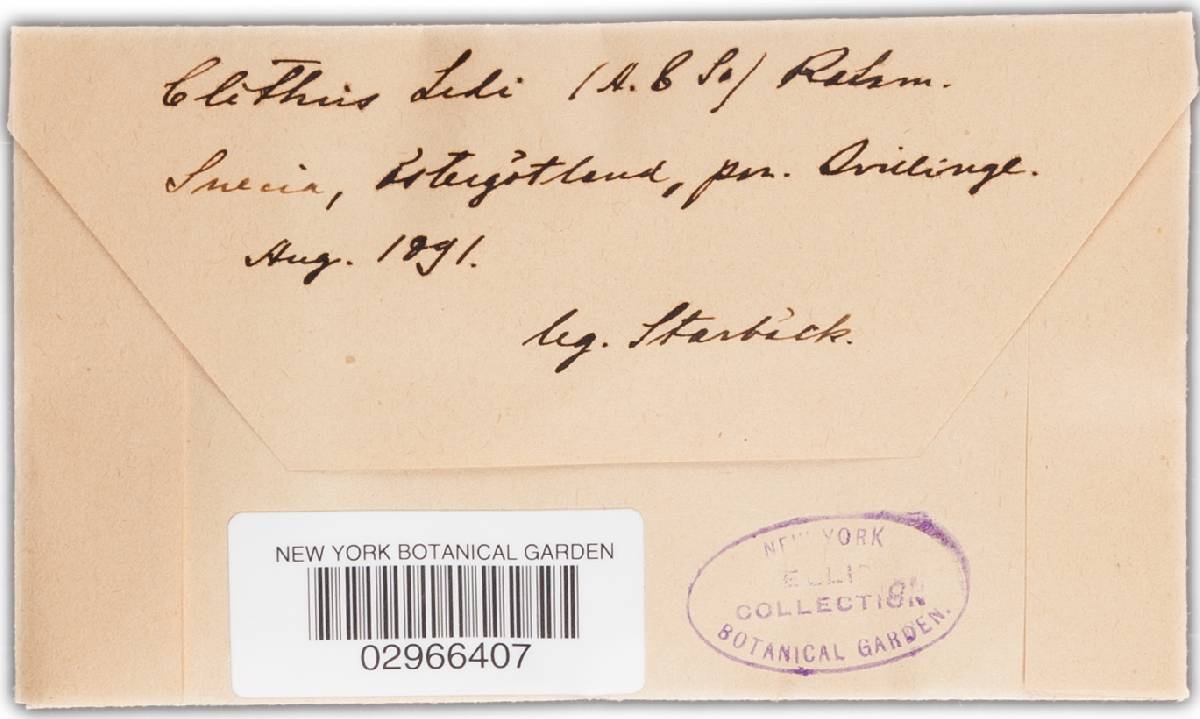 Clithris Ledi (A. & S.) Rehm.
Suecia, Östergötland, par. Kvillinge.
Aug. 1891.
leg. Starbäck.
NEW YORK BOTANICAL GARDEN
02966407
NEW YORK
ELLIS
COLLECTION
BOTANICAL GARDEN.